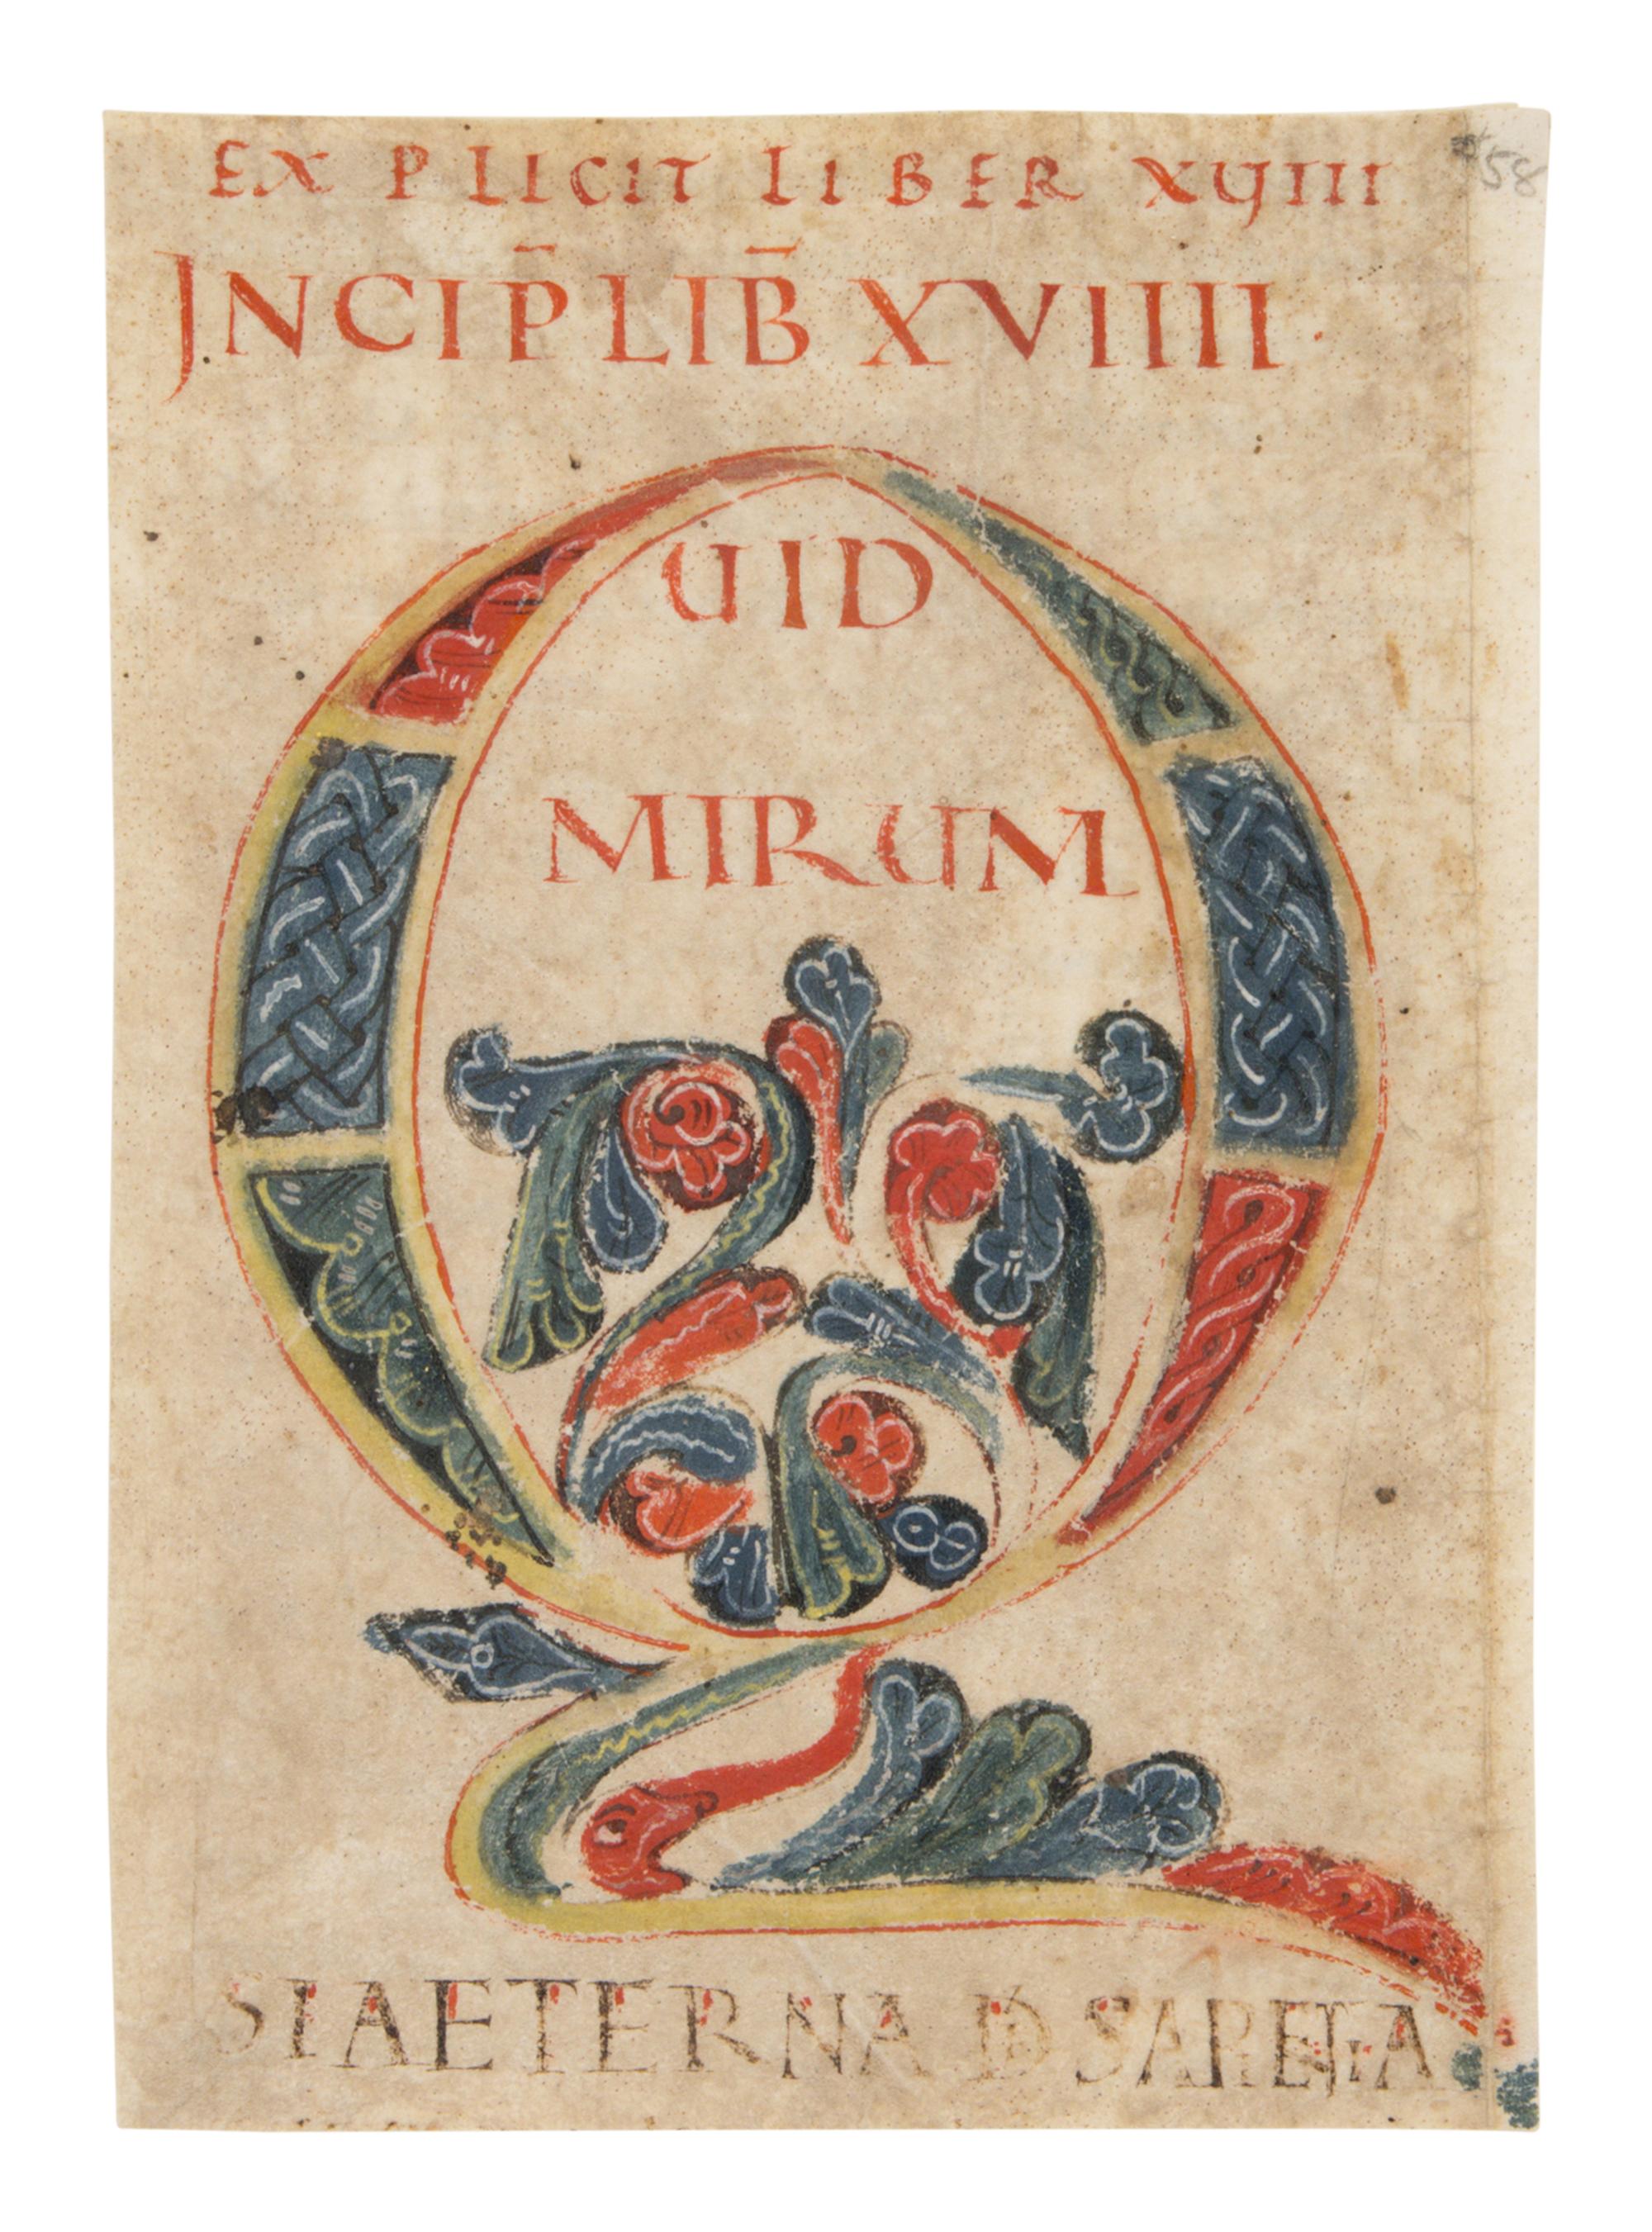 EXPLICIT LIBER XVIII
#58
INCIP̄ LIB̄ XVIIII·
QUID
MIRUM
SI AETERNA D̄I SAPIĒTIA